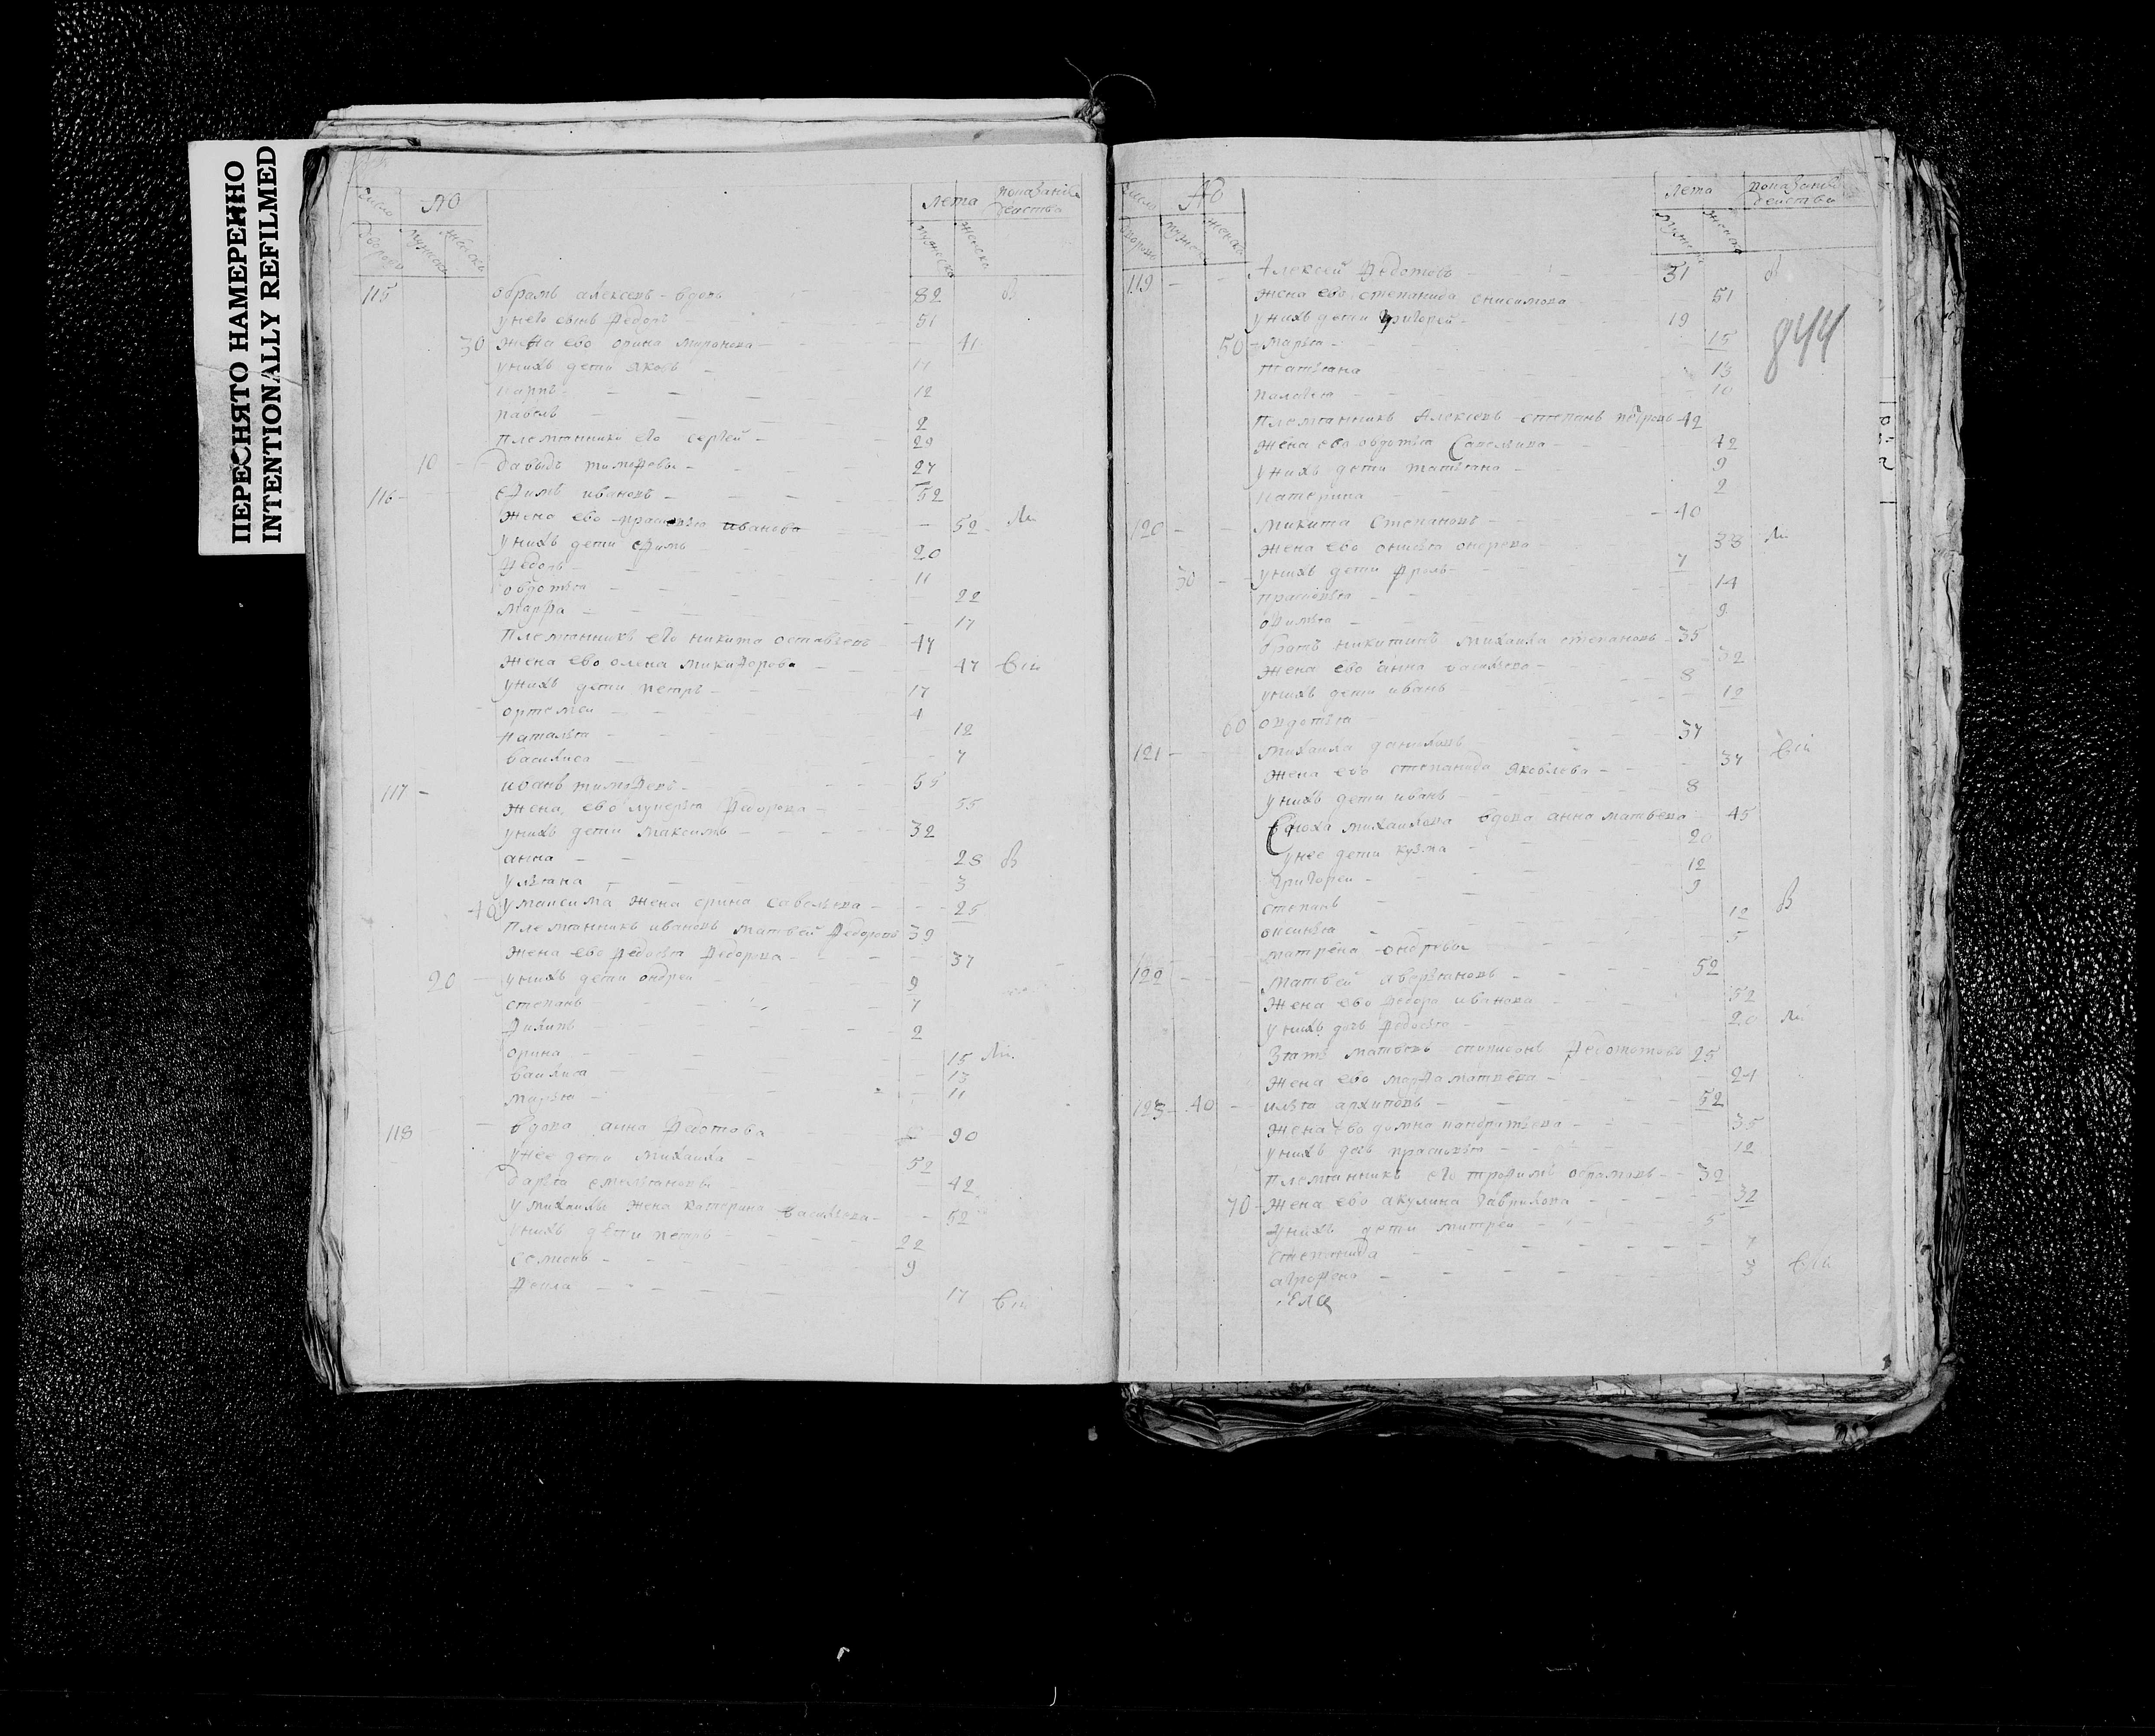 ПЕРЕСНЯТО НАМЕРЕННО
INTENTIONALLY REFILMED
число АО лета показаниѣ действа
дворовъ мужеска женска мужеска женска
115 обрамъ алексеевъ вдовъ 82 в
у него сынъ Ѳедоръ 51
30 жена ево орина миронова 41
у нихъ дети яковъ 17
карпъ 12
павелъ 2
племянники его сергей 29
10 давыдъ тимоѳевы 27
116 еѳимъ ивановъ 52
жена ево прасковья иванова 52 ли
у нихъ дети еѳимъ 20
Ѳедоръ 11
овдотья 22
марѳа 17
племянникъ его никита оставьевъ 47
жена ево олена микиѳорова 47 всп
у нихъ дети петръ 17
ортемеи 4
наталья 12
василиса 7
117 иванъ тимоѳеевъ 55
жена ево лукерья Ѳедорова 55
у нихъ дети максимъ 32
анна 28 в
ульяна 3
40 у максима жена ерина савельева 25
племянникъ ивановъ матвей Ѳедоровъ 39
жена ево Ѳедосья Ѳедорова 37
20 у нихъ дети ондреи 9
степанъ 7
Ѳилипъ 2
орина 15 ли
василиса 13
марья 11
118 вдова анна Ѳедотова 90
у нее дети михаила 52
дарья емельяновы 42
у михаилы жена катерина васильева 52
у нихъ дети петръ 22
семионъ 9
Ѳекла 17 всп
число АО лета показаниѣ действа
дворовъ мужеска женска мужеска женска
119 Алексей Ѳедотовъ 51 в
жена ево степанида онисимова 51
у нихъ дети григорей 19
844
50 марья 15
татьяна 13
палагия 10
племянникъ Алексеевъ степанъ петровъ 42
жена ево овдотья Савельива 42
у нихъ дети татьяна 9
катерина 2
120 микита степановъ 40
жена ево онисья ондреева 38 ли
30 у нихъ дети Ѳролъ 7
прасковья 14
оѲимья 9
братъ никитинъ михаила степановъ 35
жена ево анна васильева 32
у нихъ дети иванъ 8
60 овдотья 12
121 михаила даниловъ 37
жена ево степанида яковлева 37 всп
у нихъ дети иванъ 8
Сноха михаилова вдова анна матвеева 45
у нее дети кузма 20
григореи 12
степанъ 9
оксинья 12 в
матрена ондреевы 5
122 матвей аверьяновъ 52
жена ево Ѳедора иванова 52
у нихъ дочь Ѳедосья 20 ли
зять матвеевъ спиридонъ Ѳедотовъ 25
жена ево марѳа матвеева 24
123 40 илья архиповъ 52
жена ево домна кондратьева 35
у нихъ дочь прасковья 12
племянникъ его троѳимъ обрамовъ 32
70 жена ево акулина гаврилова 32
у нихъ дети митреи 5
степанида 7
агроѳена 3 всп